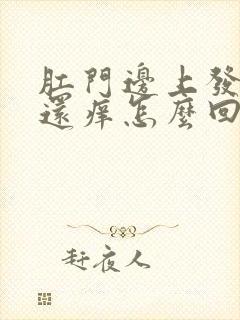 肛門邊上發
還痒怎麼回
赶夜人